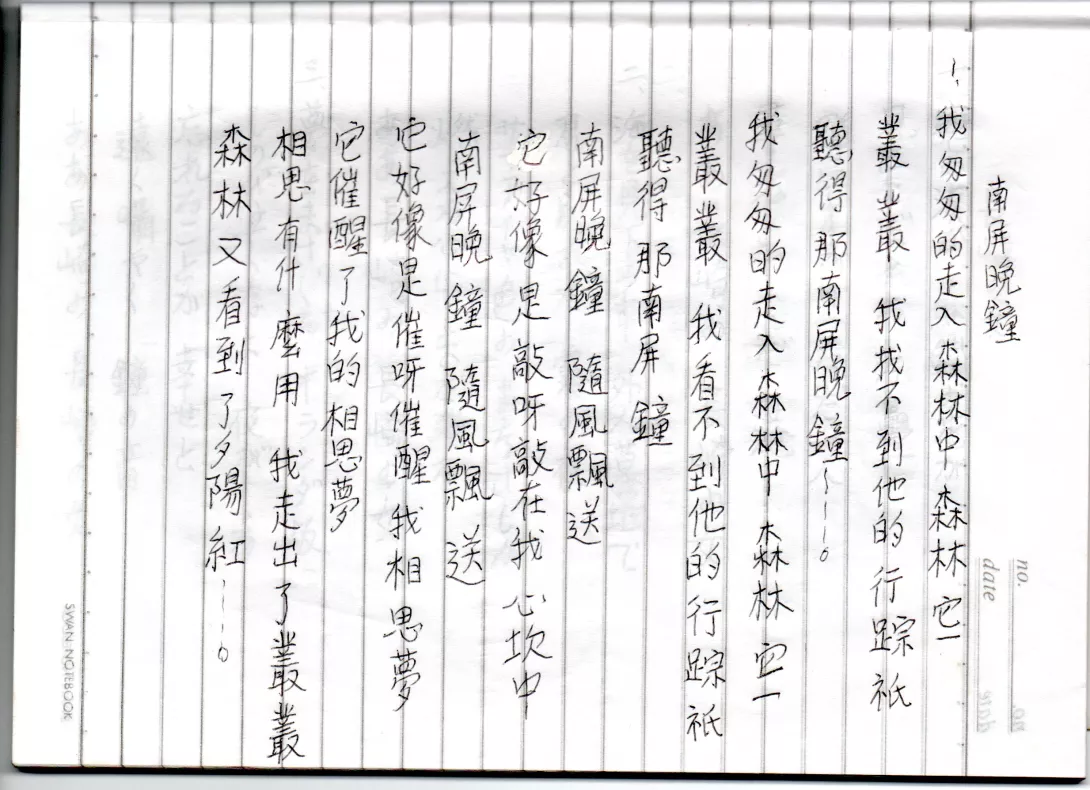 南屏晚鐘
1、我匆匆的走入森林中 森林它一
叢叢 我找不到他的行踪祇
聽得那南屏晚鐘~~~。
我匆匆的走入森林中 森林它一
叢叢 我看不到他的行踪祇
聽得那南屏 鐘
南屏晚鐘 隨風飄送
它好像是敲呀敲在我心坎中
南屏晚鐘 隨風飄送
它好像是催呀催醒我相思夢
它催醒了我的相思夢
相思有什麼用 我走出了叢叢
森林又看到了夕陽紅~~~。
no.
date
SWAN・NOTEBOOK